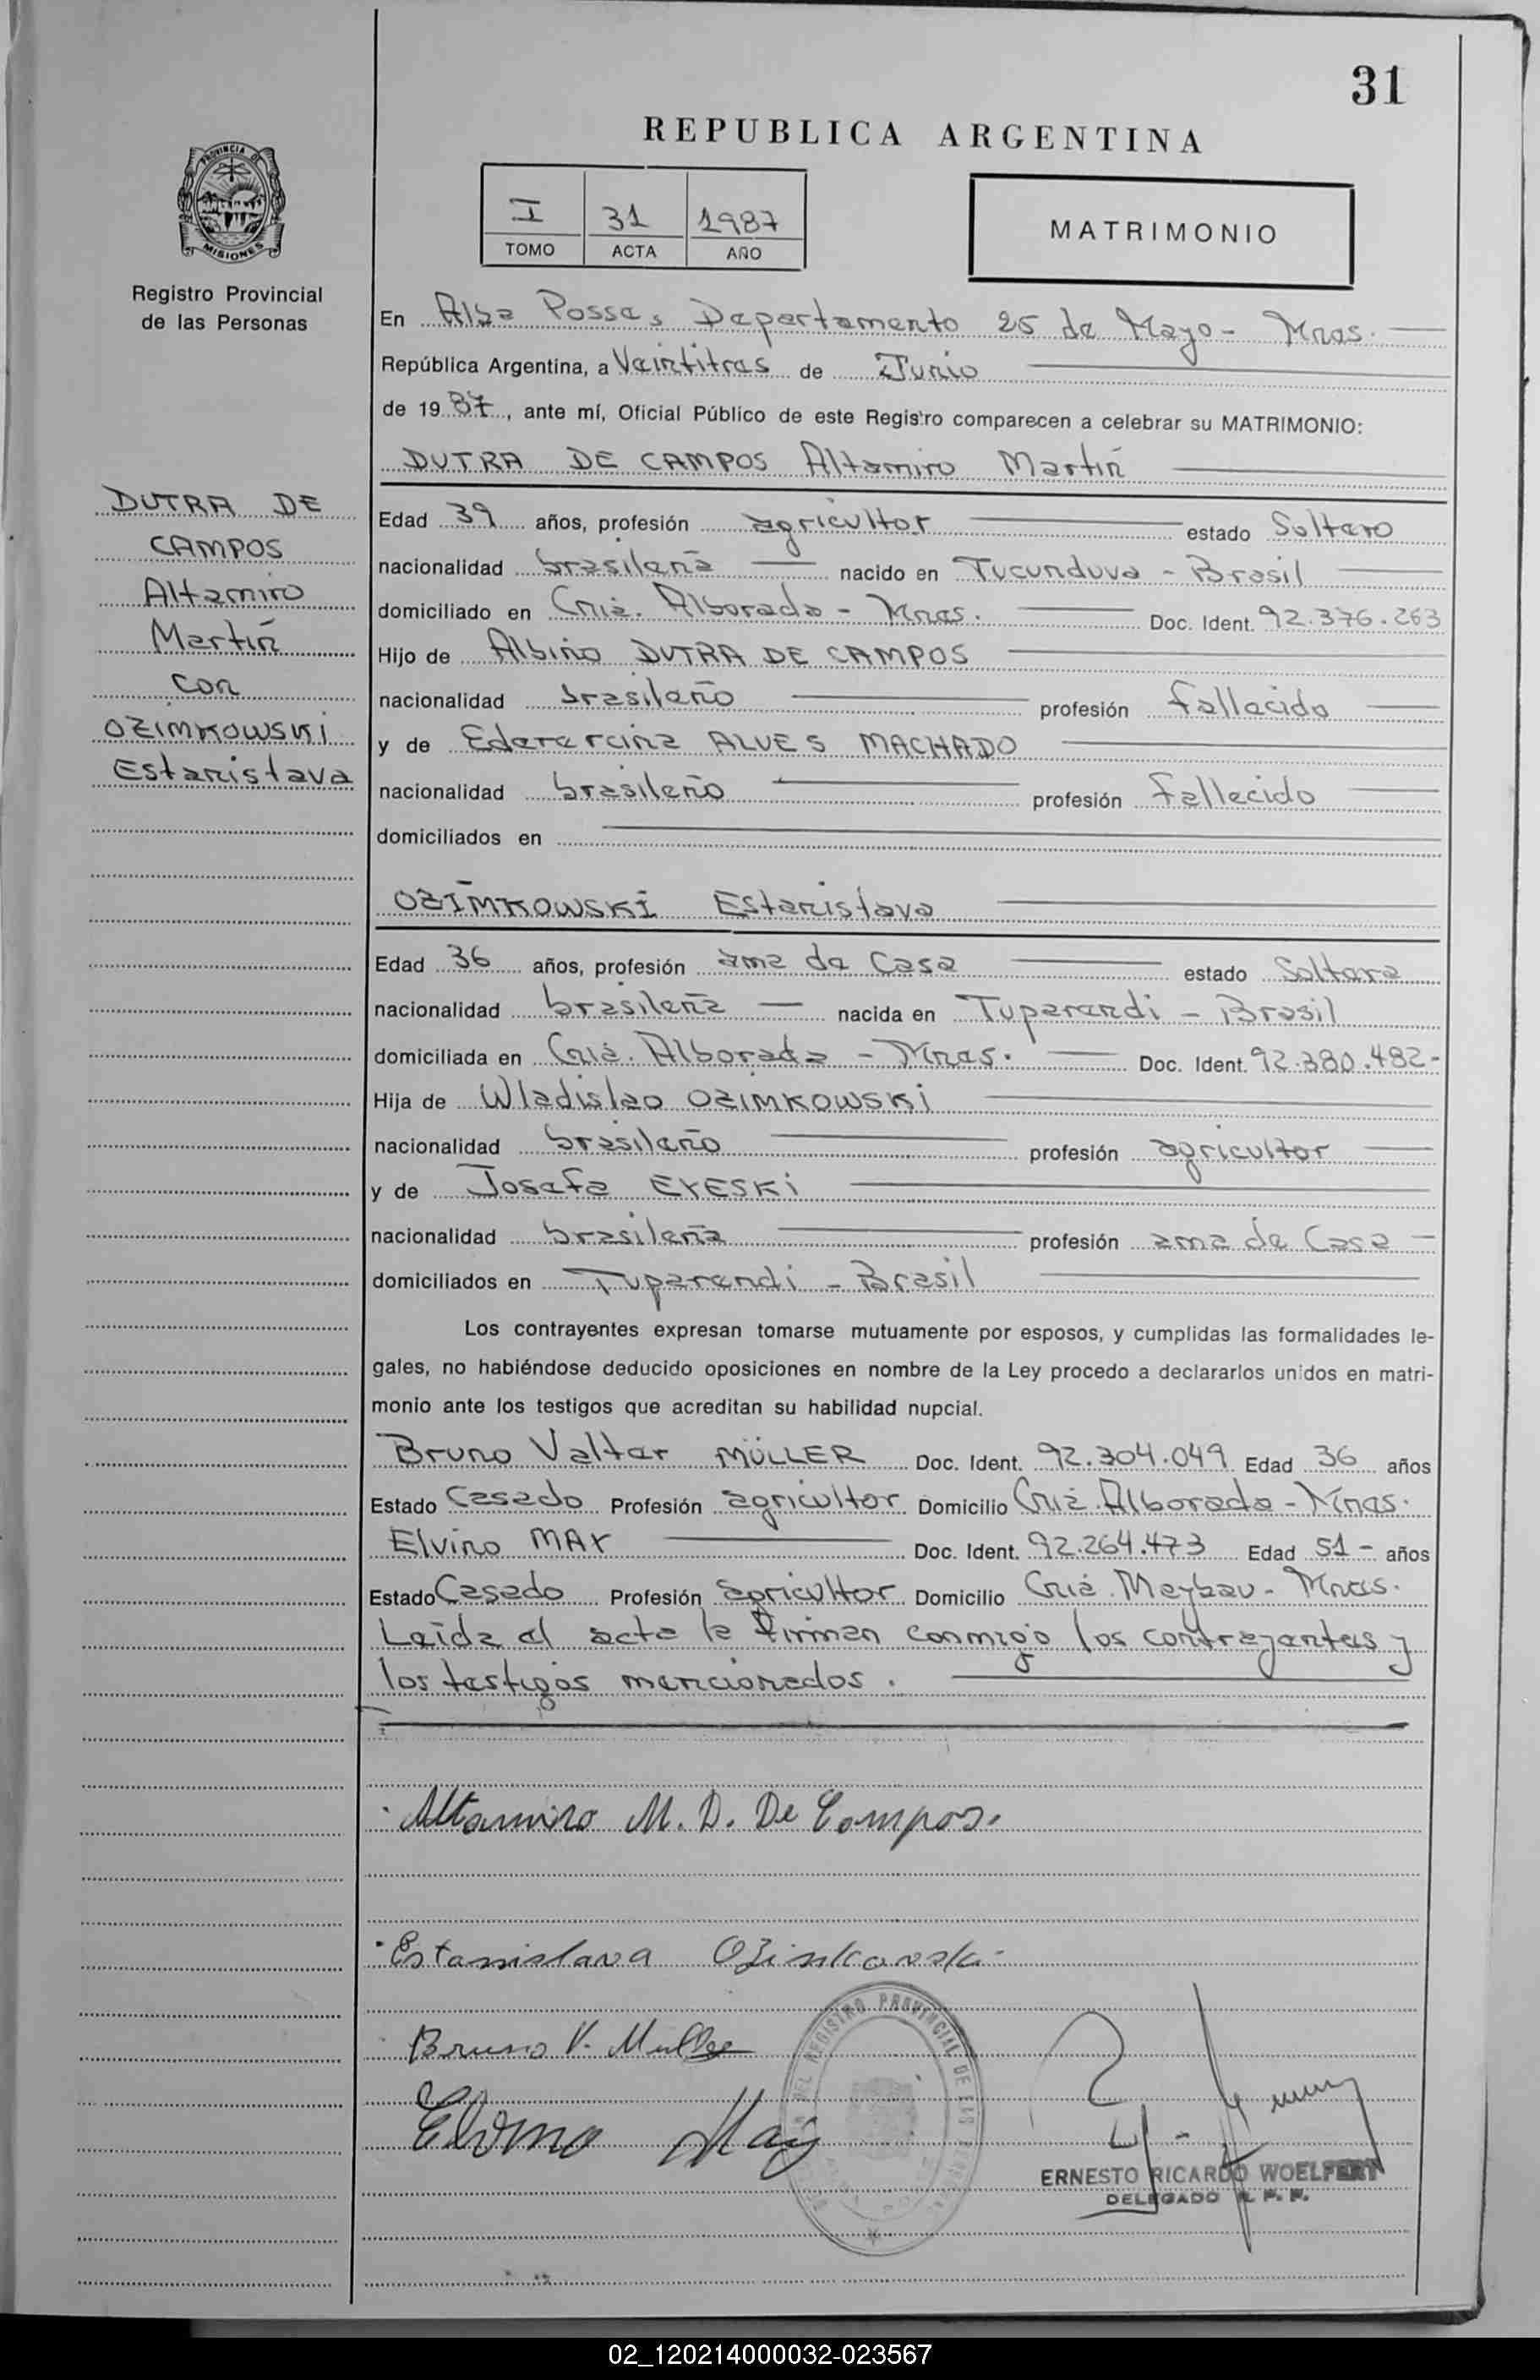 31
REPUBLICA ARGENTINA
PROVINCIA DE
MISIONES
Registro Provincial
de las Personas
I 31 1987
TOMO ACTA AÑO
MATRIMONIO
En Alba Posse, Departamento 25 de Mayo - Mnes.
República Argentina, a Veintitres de Junio
de 1987, ante mí, Oficial Público de este Registro comparecen a celebrar su MATRIMONIO:
DUTRA DE CAMPOS Altamiro Martín
DUTRA DE
CAMPOS
Altamiro
Martín
con
OZIMKOWSKI
Estanislava
Edad 39 años, profesión agricultor estado Soltero
nacionalidad brasileña nacido en Tucunduva - Brasil
domiciliado en Cnia. Alborada - Mnes. Doc. Ident. 92.376.263
Hijo de Albino DUTRA DE CAMPOS
nacionalidad brasileño profesión fallecido
y de ALVES MACHADO
nacionalidad brasileño profesión fallecido
domiciliados en
OZIMKOWSKI Estanislava
Edad 36 años, profesión ama de Casa estado Soltera
nacionalidad brasileña nacida en Tuparendi - Brasil
domiciliada en Cnia. Alborada - Mnes. Doc. Ident. 92.380.482-
Hija de Wladislao OZIMKOWSKI
nacionalidad brasileño profesión agricultor
y de Josefa EYESKI
nacionalidad brasileña profesión ama de Casa
domiciliados en Tuparendi - Brasil
Los contrayentes expresan tomarse mutuamente por esposos, y cumplidas las formalidades le-
gales, no habiéndose deducido oposiciones en nombre de la Ley procedo a declararlos unidos en matri-
monio ante los testigos que acreditan su habilidad nupcial.
Bruno Valter MÜLLER Doc. Ident. 92.304.049 Edad 36 años
Estado Casado Profesión agricultor Domicilio Cnia. Alborada - Mnes.
Elvino MAY Doc. Ident. 92.264.473 Edad 51 - años
Estado Casado Profesión agricultor Domicilio Cnia. Maybau - Mnes.
Leída el acta la firman conmigo los contrayentes y
los testigos mencionados.
Altamiro M. D. De Campos.
Estanislava Ozimkovski
Bruno V. Muller
Elvino May
DEL REGISTRO PROVINCIAL DE LAS
ERNESTO RICARDO WOELFERT
DELEGADO R. P. P.
02_120214000032-023567